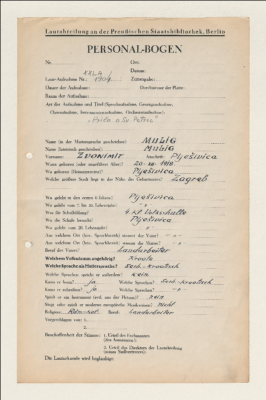 Lautabteilung an der Preußischen Staatsbibliothek, Berlin
PERSONAL-BOGEN
Nr. Ort:
Datum:
Laut-Aufnahme Nr.: LA 1904 Zeitangabe:
Dauer der Aufnahme: Durchmesser der Platte:
Raum der Aufnahme:
Art der Aufnahme und Titel (Sprechaufnahme, Gesangsaufnahme,
Choraufnahme, Instrumentenaufnahme, Orchesteraufnahme):
Name (in der Muttersprache geschrieben): MUŽIG
Name (lateinisch geschrieben): MUŽIG
Vorname: ZVONIMIR Anschrift: Plješivica
Wann geboren (oder ungefähres Alter)?
Wo geboren (Heimatsort)? Plješivica
Welche größere Stadt liegt in der Nähe des Geburtsortes? Zagreb
Wo gelebt in den ersten 6 Jahren? Plješivica
Wo gelebt vom 7. bis 20. Lebensjahr? "
Was für Schulbildung? 4 kl.
Wo die Schule besucht? Plješivica
Wo gelebt vom 20. Lebensjahr? "
Aus welchem Ort (bzw. Sprachbezirk) stammt der Vater? "
Aus welchem Ort (bzw. Sprachbezirk) stammt die Mutter? "
Beruf des Vaters? Landarbeiter
Welchem Volksstamm angehörig? Kroate
Welche Sprache als Muttersprache? Serb.-kroatisch
Welche Sprachen spricht er außerdem? kein
Kann er lesen? ja Welche Sprachen? Serb-kroatisch
Kann er schreiben? ja Welche Sprachen? " - "
Spielt er ein Instrument (evtl. aus der Heimat)? nein
Singt oder spielt er moderne europäische Musikweisen? nicht
Religion: Röm-kat. Beruf: Landarbeiter
Vorgeschlagen von: 1.
2.
Beschaffenheit der Stimme: 1. Urteil des Fachmannes
(des Assistenten):
2. Urteil des Direktors der Lautabteilung
(seines Stellvertreters):
Die Lauturkunde wird beglaubigt: